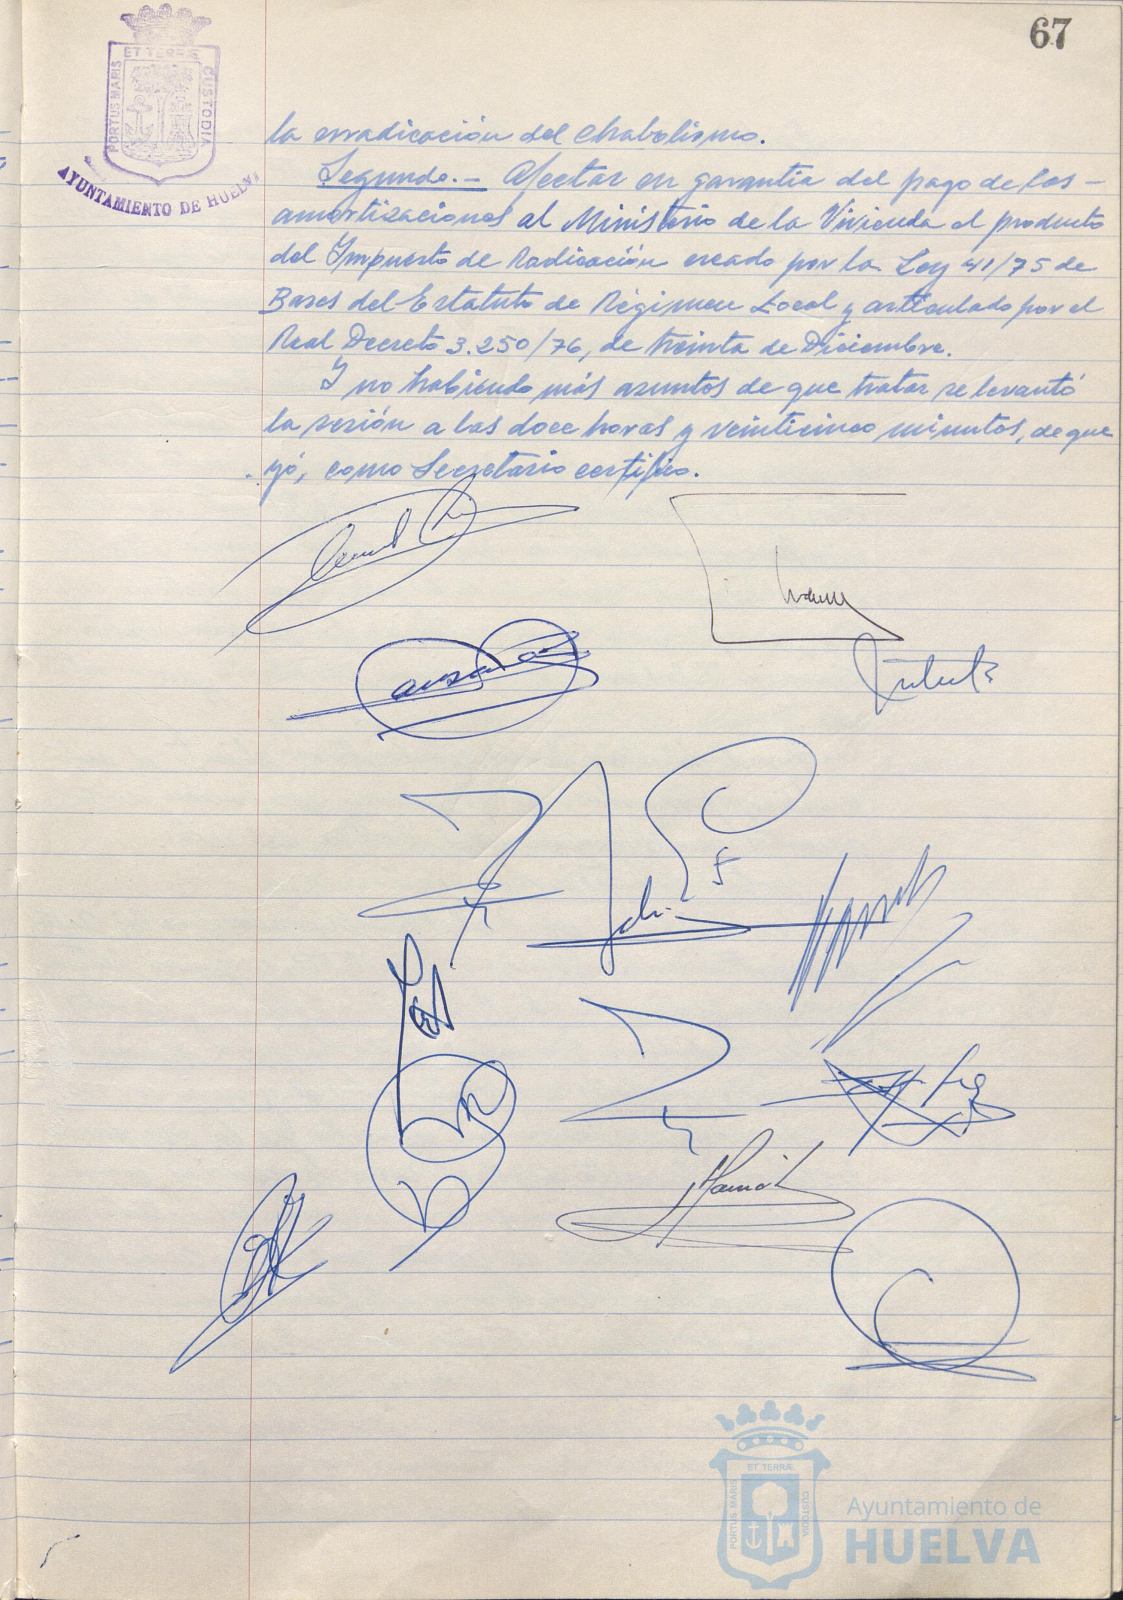 67
PORTUS MARIS ET TERRÆ CUSTODIA
AYUNTAMIENTO DE HUELVA
la erradicación del chabolismo.
Segundo.- Afectar en garantía del pago de las -
amortizaciones al Ministerio de la Vivienda el producto
del Impuesto de Radicación creado por la Ley 41/75 de
Bases del Estatuto de Régimen Local y articulado por el
Real Decreto 3.250/76, de treinta de Diciembre.
Y no habiendo más asuntos de que tratar se levantó
la sesión a las doce horas y veinticinco minutos, de que
yó, como Secretario certifico.
PORTUS MARIS ET TERRÆ CUSTODIA
Ayuntamiento de
HUELVA